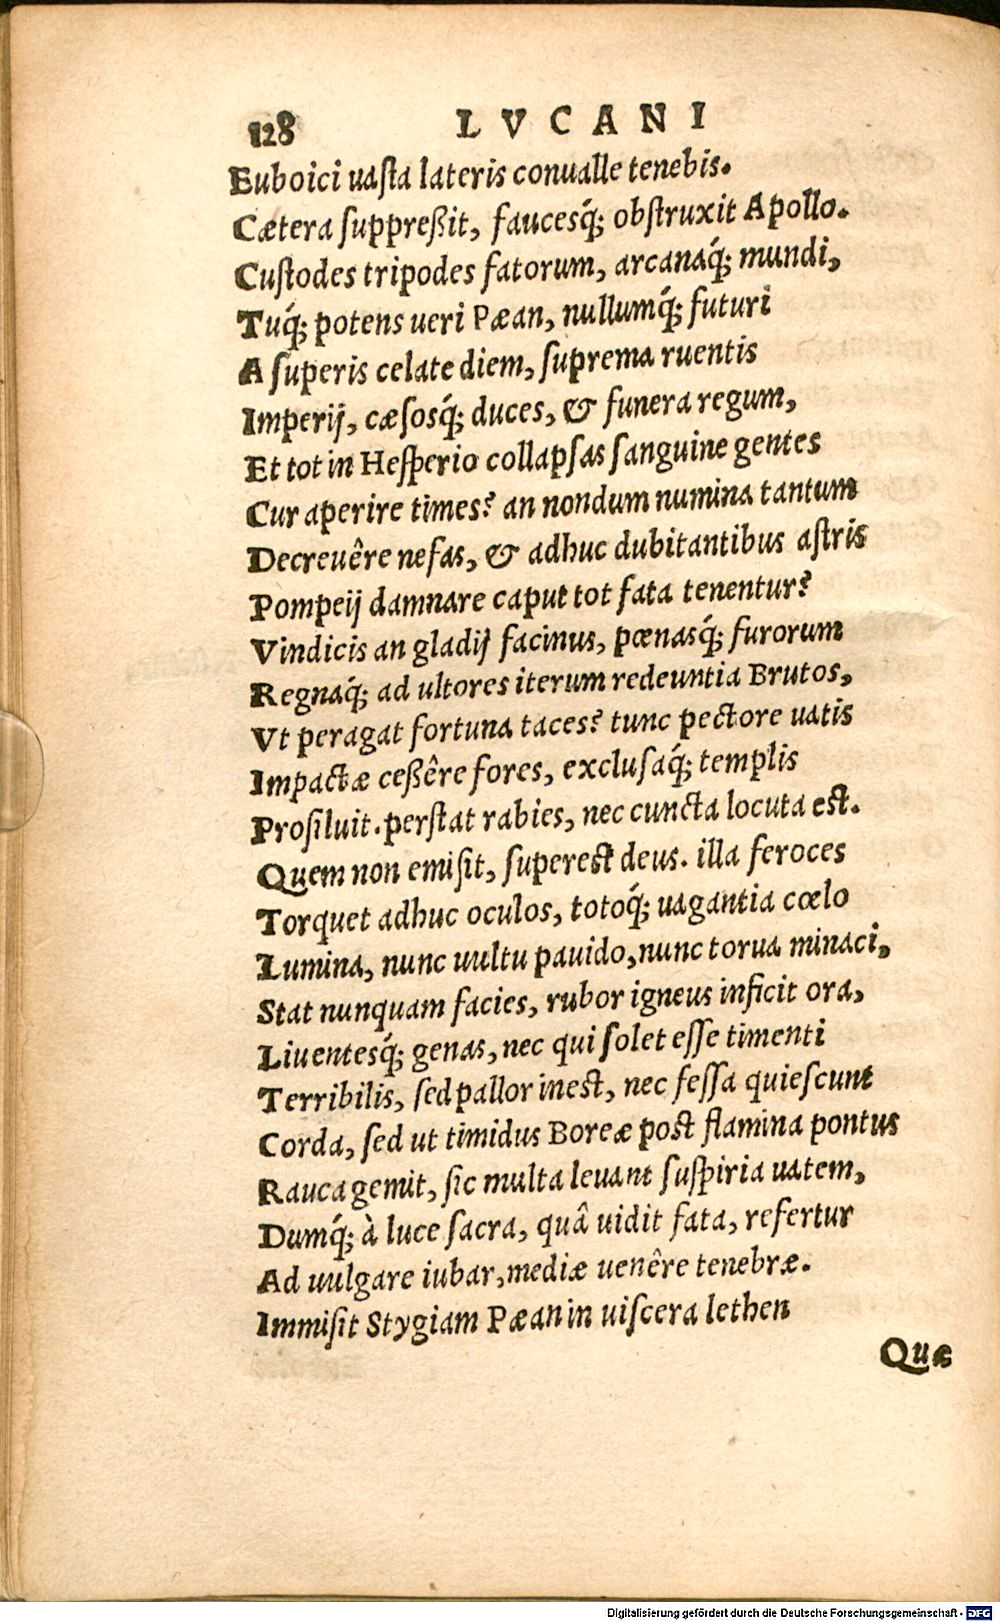 128 LVCANI
Euboici uaſta lateris conualle tenebis.
Cætera ſuppreßit, faucesq́; obſtruxit Apollo.
Cuſtodes tripodes fatorum, arcanaq́; mundi,
Tuq́; potens ueri Pæan, nullumq́; futuri
A ſuperis celate diem, ſuprema ruentis
Imperij, cæſosq́; duces, & funera regum,
Et tot in Heſperio collapſas ſanguine gentes
Cur aperire times? an nondum numina tantum
Decreuêre nefas, & adhuc dubitantibus aſtris
Pompeij damnare caput tot fata tenentur?
Vindicis an gladij facinus, pœnasq́; furorum
Regnaq́; ad ultores iterum redeuntia Brutos,
Vt peragat fortuna taces? tunc pectore uatis
Impactæ ceßêre fores, excluſaq́; templis
Proſiluit. perſtat rabies, nec cuncta locuta eſt.
Quem non emiſit, ſupereſt deus. illa feroces
Torquet adhuc oculos, totoq́; uagantia cœlo
Lumina, nunc uultu pauido, nunc torua minaci,
Stat nunquam facies, rubor igneus inficit ora,
Liuentesq́; genas, nec qui ſolet eſſe timenti
Terribilis, ſed pallor ineſt, nec feſſa quieſcunt
Corda, ſed ut timidus Boreæ poſt flamina pontus
Rauca gemit, ſic multa leuant ſuſpiria uatem,
Dumq́; à luce ſacra, quâ uidit fata, refertur
Ad uulgare iubar, mediæ uenêre tenebræ.
Immiſit Stygiam Pæan in uiſcera lethen
Quæ
Digitalisierung gefördert durch die Deutsche Forschungsgemeinschaft - DFG